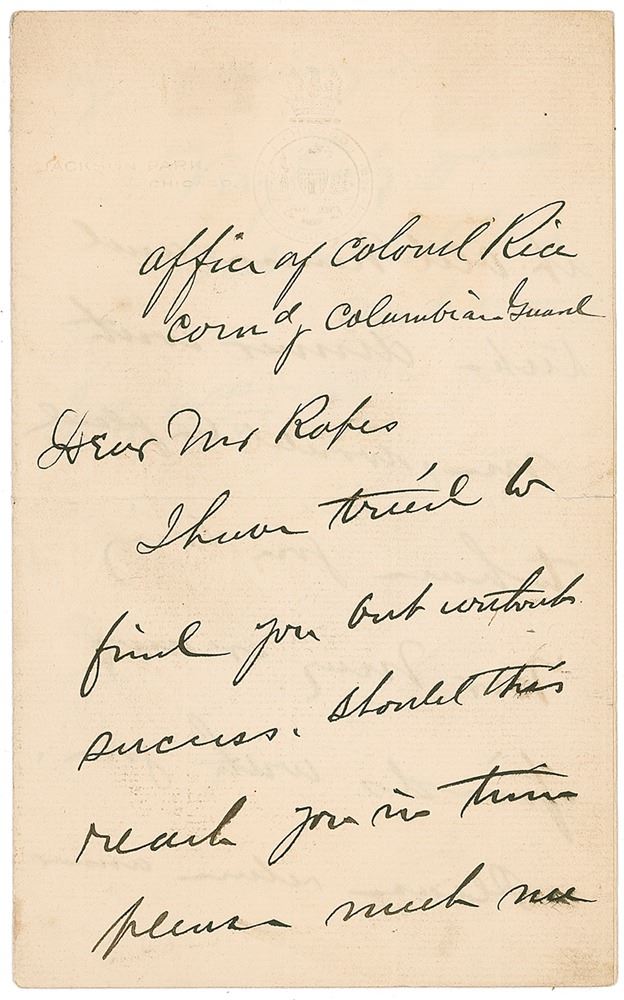 JACKSON PARK,
CHICAGO.
office of Colonel Rice
Com'd'g Columbian Guard
Dear Mr Ropes
I have tried to
find you out without
success. Should this
reach you in time
please meet me